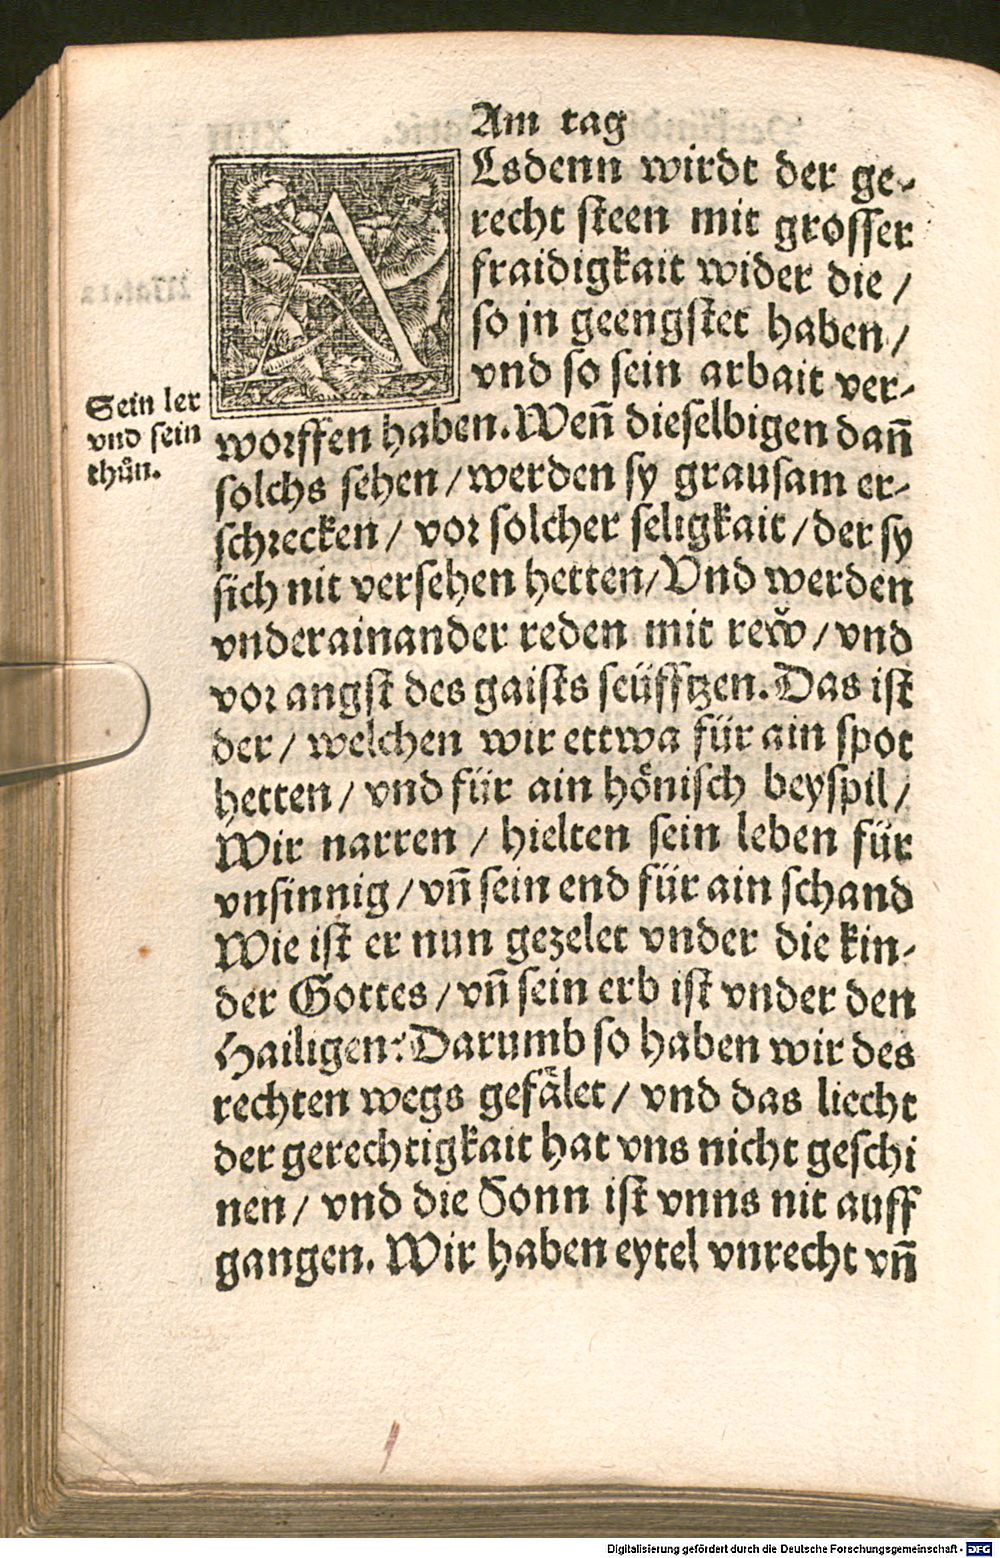 Am tag
ALsdenn wirdt der ge-
recht steen mit grosser
fraidigkait wider die /
so jn geengstet haben /
vnd so sein arbait ver-
Sein ler
vnd sein
thůn.
worffen haben. Weñ dieselbigen dañ
solchs sehen / werden sy grausam er-
schrecken / vor solcher seligkait / der sy
sich nit versehen hetten / Vnd werden
vnderainander reden mit rew̌ / vnd
vor angst des gaists seüfftzen. Das ist
der / welchen wir ettwa für ain spot
hetten / vnd für ain hönisch beyspil /
Wir narren / hielten sein leben für
vnsinnig / vñ sein end für ain schand
Wie ist er nun gezelet vnder die kin-
der Gottes / vñ sein erb ist vnder den
Hailigen? Darumb so haben wir des
rechten wegs gefälet / vnd das liecht
der gerechtigkait hat vns nicht geschi
nen / vnd die Sonn ist vnns nit auff
gangen. Wir haben eytel vnrecht vñ
Digitalisierung gefördert durch die Deutsche Forschungsgemeinschaft - DFG